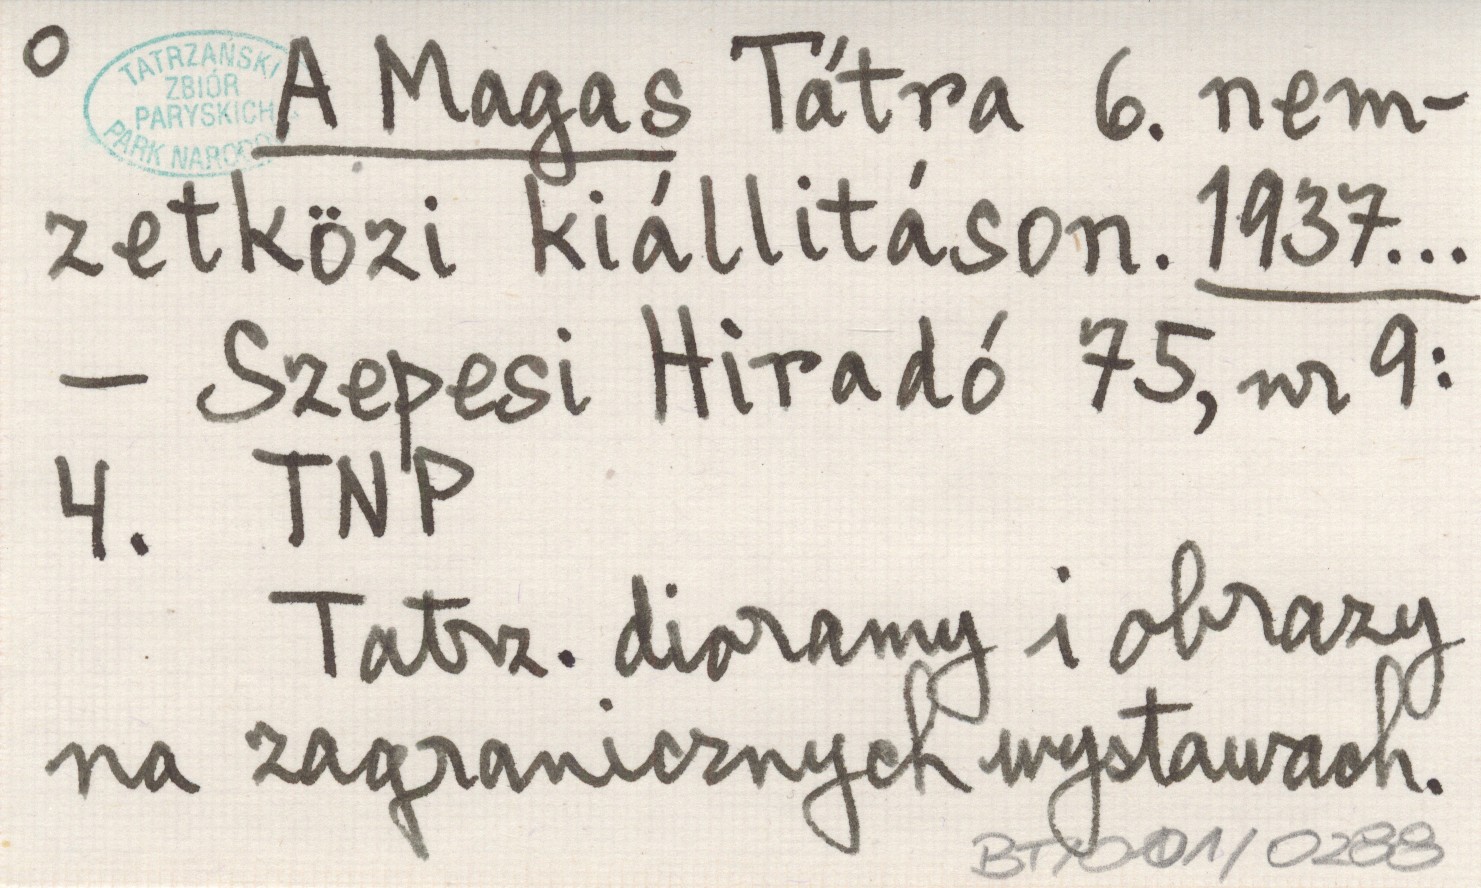 o
TATRZAŃSKI
ZBIÓR
PARYSKICH
PARK NAROD
A Magas Tátra 6. nem-
zetközi kiállitáson. 1937...
– Szepesi Hiradó 75, nr 9:
4. TNP
Tatrz. dioramy i obrazy
na zagranicznych wystawach.
BT/001/0288